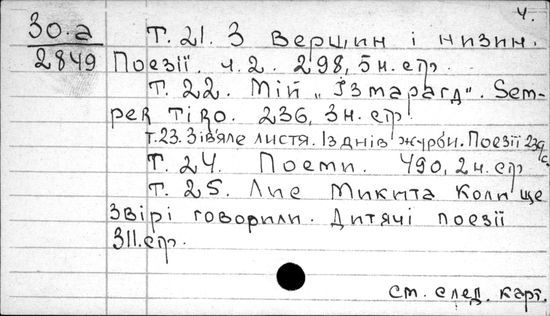 4.
30.а
2849
Т. 21. З вершин і низин.
Поезії. ч. 2. 298, 5 н. стр.
Т. 22. Мій „Ізмарагд". Sem-
per Tiro. 236, 3 н. стр.
т. 23. Зівяле листя. Із днів журби. Поезії 239 с.
Т. 24. Поеми. 490, 2 н. стр
Т. 25. Лис Микита Коли ще
звірі говорили. Дитячі поезії
311. стр.
см. след. карт.